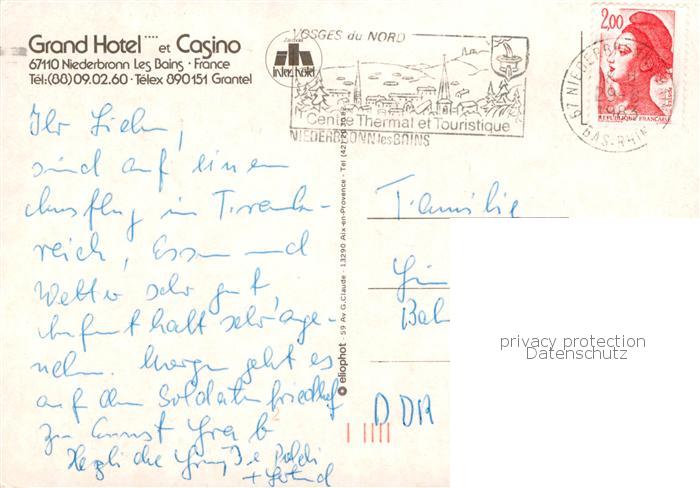 Grand Hotel **** et Casino
67110 Niederbronn Les Bains · France
Tél:(88)09.02.60 · Télex 890151 Grantel
VOSGES du NORD
Centre Thermal et Touristique
NIEDERBRONN les BAINS
2,00
REPUBLIQUE FRANCAISE
67 NIEDERB
BAS-RHIN
Ihr Lieben,
sind auf einem
Ausflug in Frank-
reich, Essen und
Wetter sehr gut,
Aufenthalt sehr ange-
nehm. Morgen geht es
auf den Soldatenfriedhof
zu Ernst Grab
Herzliche Grüße Poldi
+
eliophot - 59 Av G.Claude - 13290 Aix-en-Provence - Tel (42)
Familie
Bah
DDR
privacy protection
Datenschutz